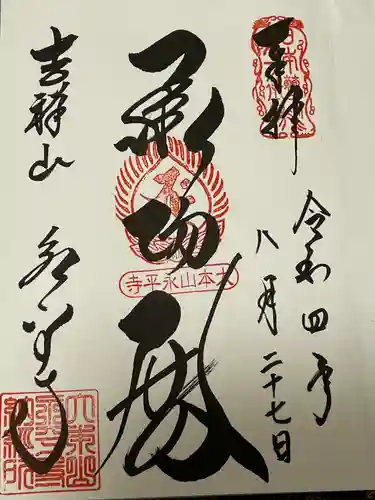 奉拝
令和四年
八月二十七日
承陽殿
大本山永平寺
吉祥山
永平寺